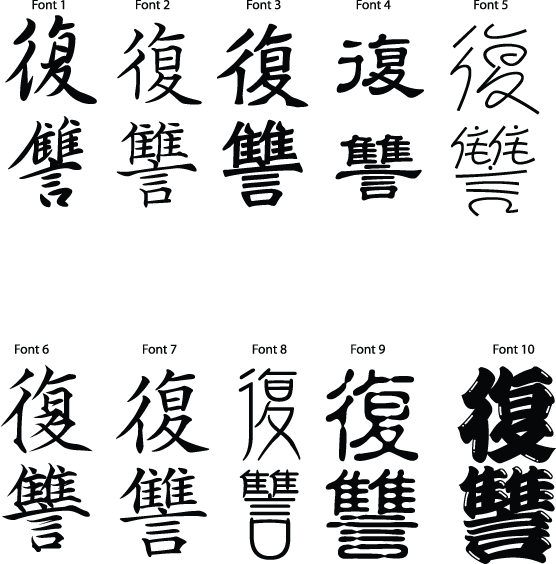 Font 1 Font 2 Font 3 Font 4 Font 5
復 復 復 復 復
讐 讐 讐 讐 讐
Font 6 Font 7 Font 8 Font 9 Font 10
復 復 復 復 復
讐 讐 讐 讐 讐